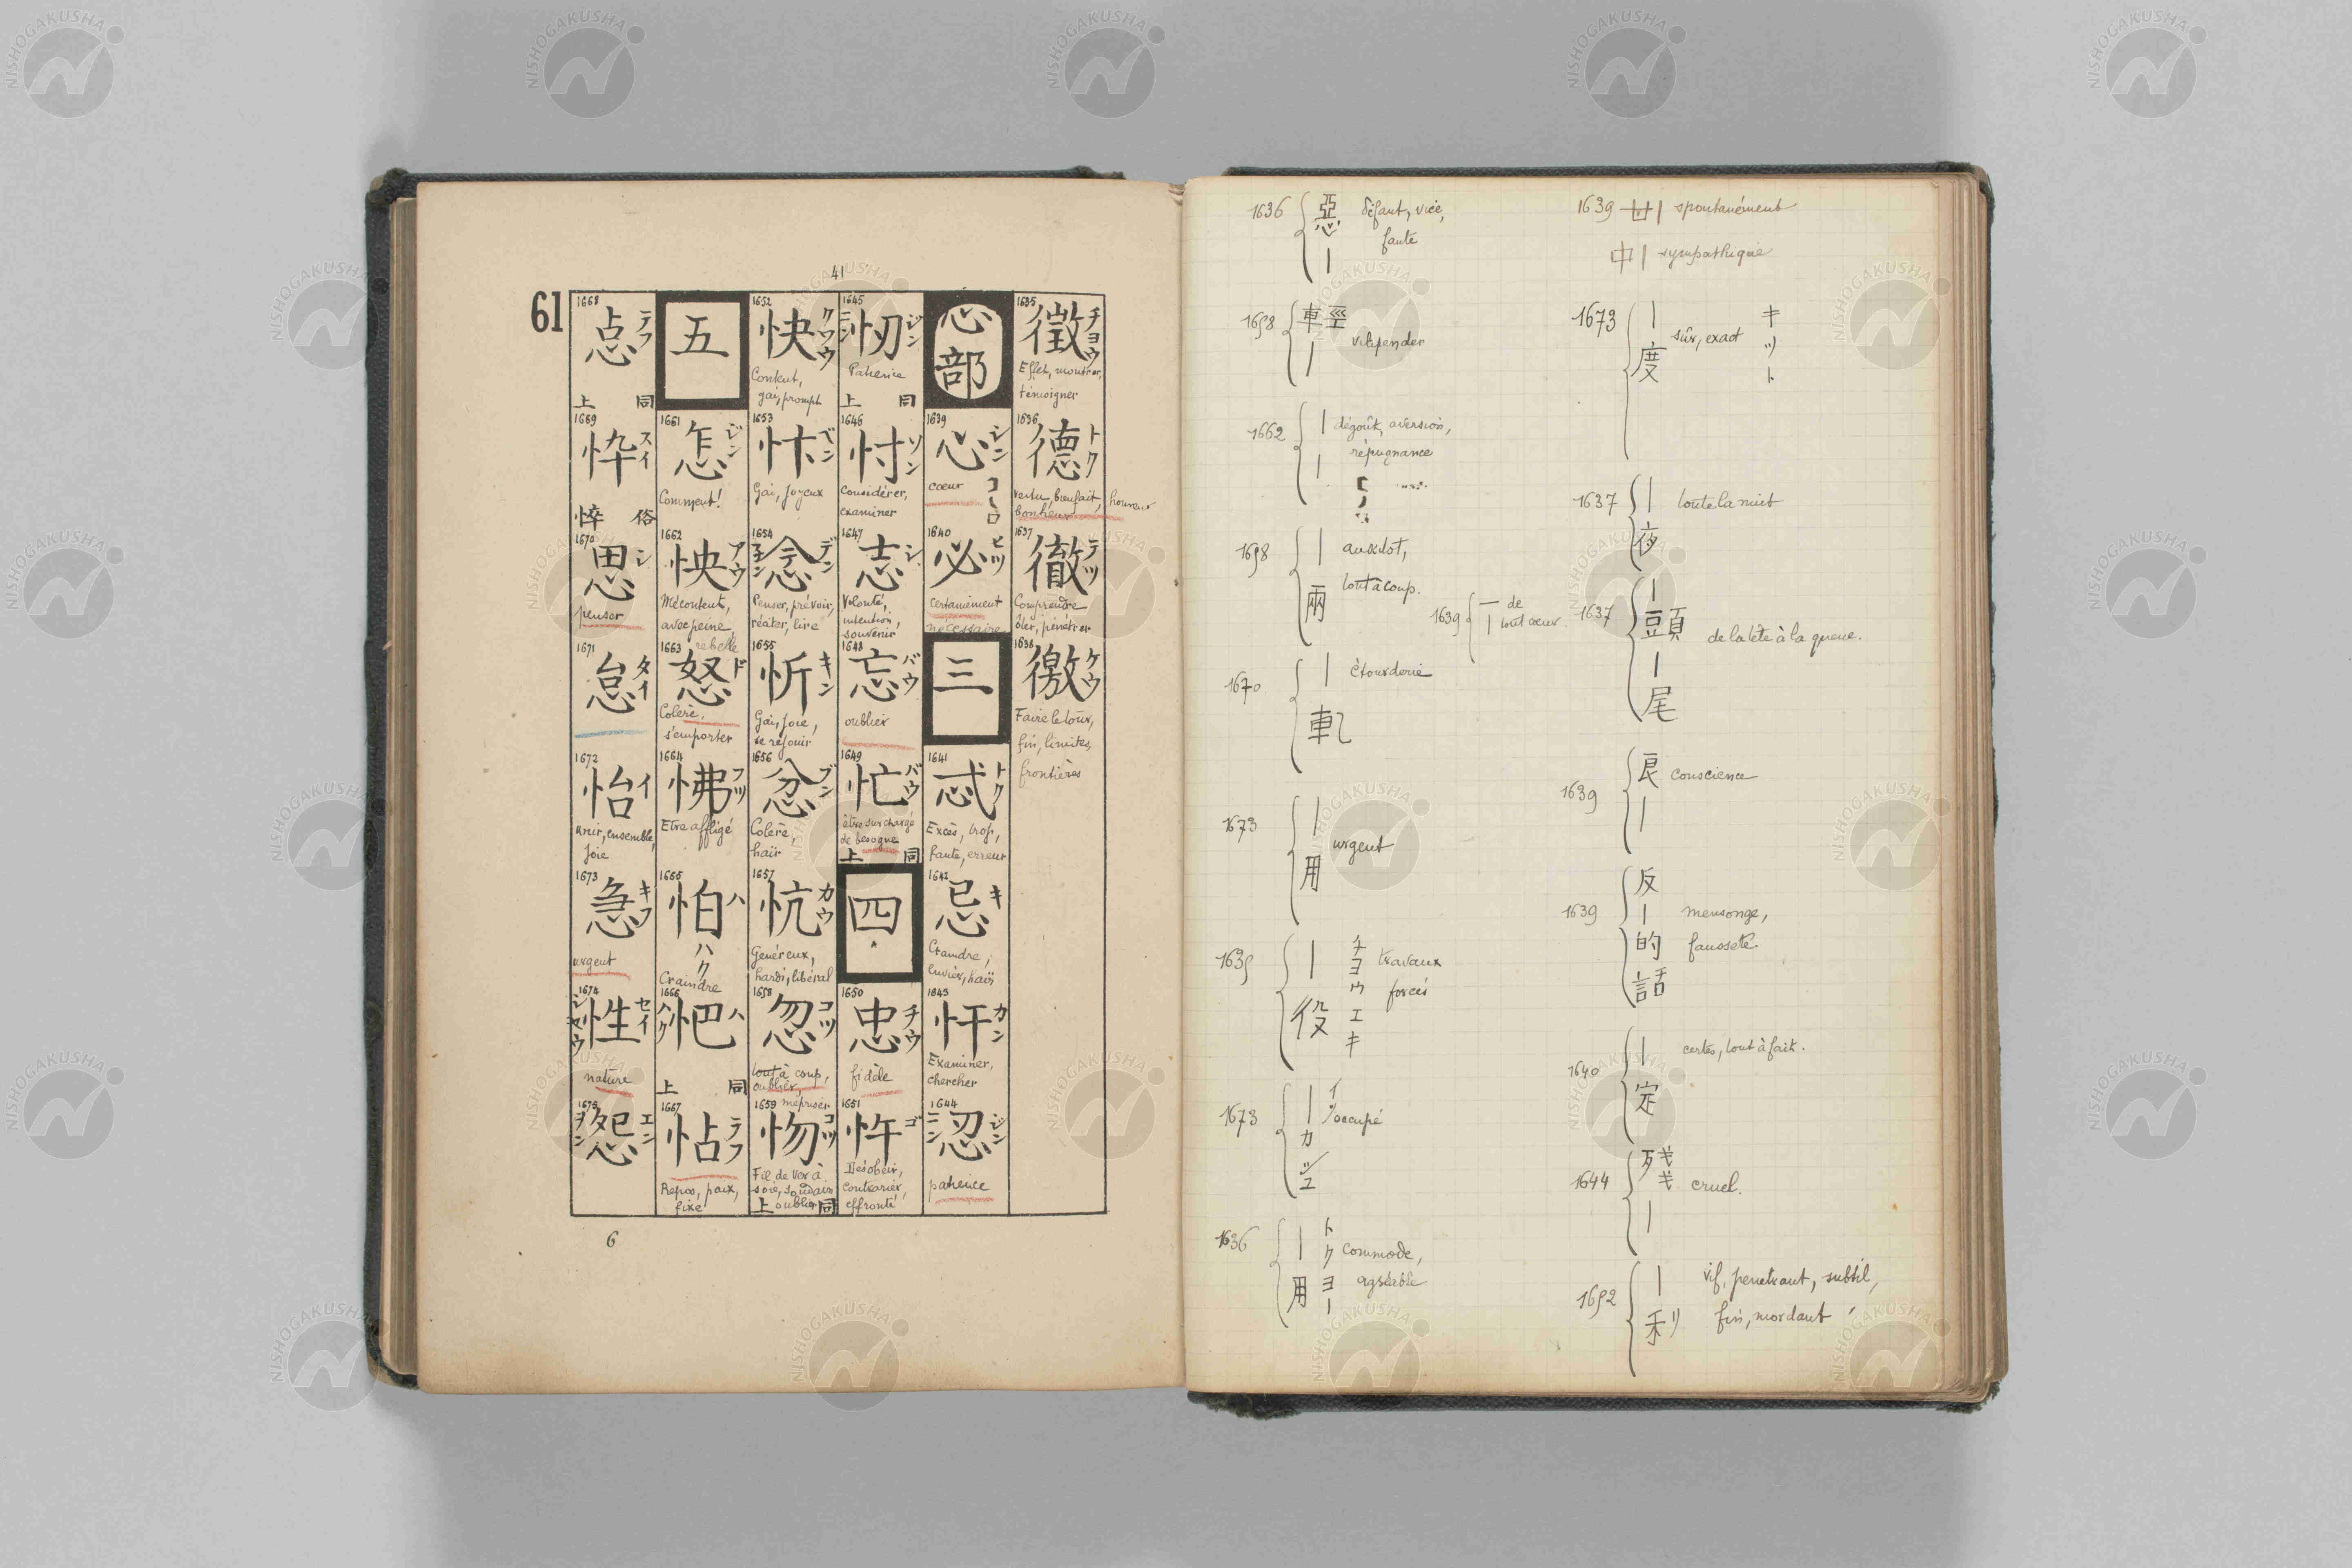 41
61
1635
徴
チヨウ
Effet, montrer,
témoigner
1636
德
トク
vertu, bienfait, honneur
bonheur
1637
徹
テツ
Comprendre
ôter, pénétrer
1638
徼
ケウ
Faire le tour,
fin, limites,
frontières
心部
1639
心
シン
cœur
コーロ
1640
必
ヒツ
certainement
nécessaire
三
1641
忒
トク
Excès, trop,
faute, erreur
1642
忌
キ
Craindre,
envier, haïr
1643
忓
カン
Examiner,
chercher
1644
忍
ジン
ニン
patience
1645
忉
ジン
ニン
Patience
同上
1646
忖
ソン
Considérer,
examiner
1647
志
シ
Volonté,
intention,
souvenir
1648
忘
バウ
oublier
1649
忙
バウ
être surchargé
de besogne
同上
四
1650
忠
チウ
fidèle
1651
忤
ゴ
Désobéir,
contrarier,
effronté
1652
快
クワウ
Content,
gai, prompt
1653
忭
ベン
Gai, joyeux
1654
念
デン
子ン
Penser, prévoir,
réciter, lire
1655
忻
キン
Gai, joie,
se réjouir
1656
忿
フン
Colère,
haïr
1657
忼
カウ
Généreux,
hardi, libéral
1658
忽
コツ
tout à coup,
oublier,
mépriser
1659
忇
コツ
Fil de ver à
soie, soudain
oublier
同上
五
1661
怎
ジン
Comment!
1662
怏
アウ
Mécontent,
avec peine
rebelle
1663
怒
ド
Colère,
s'emporter
1664
怫
フツ
Etre affligé
1665
怕
ハ
ハク
Craindre
1666
怶
ハ
ハク
同上
1667
怗
テフ
Repos, paix,
fixé
1668
怘
テフ
同上
1669
忰
スイ
俗悴
1670
思
シ
penser
1671
怠
タイ
1672
怡
イ
unir, ensemble,
joie
1673
急
キフ
urgent
1674
性
セイ
シヤウ
nature
1675
怨
エン
ヲン
6
1636 惡| défaut, vice,
faute
1658 輕| vilipender
1662 | dégoût, aversion,
répugnance
1658 |兩 aussitôt,
tout à coup.
1639 一| de
tout cœur
1670 |軋 étourderie
1673 |用 urgent
1635 |役 チヨウエキ travaux
forcés
1673 | occupé
1636 |用 トクヨー commode,
agréable
1639 廿| spontanément
中| sympathique
1673 |度 キツト sûr, exact
1637 |夜 toute la nuit
1637 |頭|尾 de la tête à la queue.
1639 良| conscience
1639 反|的話 mensonge,
fausseté.
1640 |定 certes, tout à fait.
1644 残| cruel.
1652 |利 vif, pénétrant, subtil,
fin, mordant
NISHOGAKUSHA